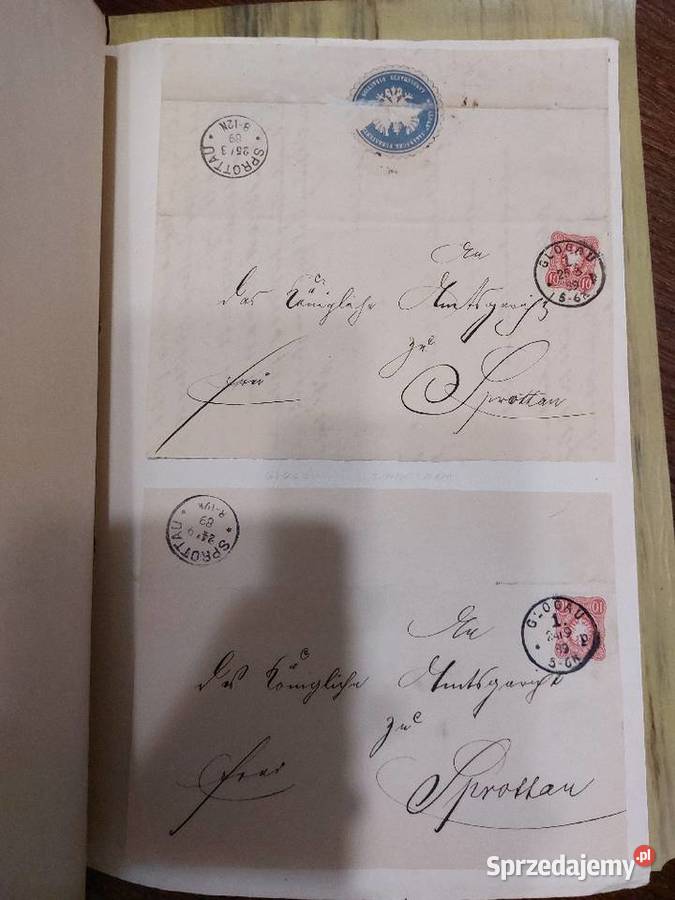 SPROTTAU
25/3
89
8-12N
GLOGAU
1.
89
An
das Königliche Amtsgericht
zu
frei
Sprottau
SPROTTAU
89
GLOGAU
1.
24/9
89
5-6N
An
das Königliche Amtsgericht
zu
frei
Sprottau
Sprzedajemy.pl